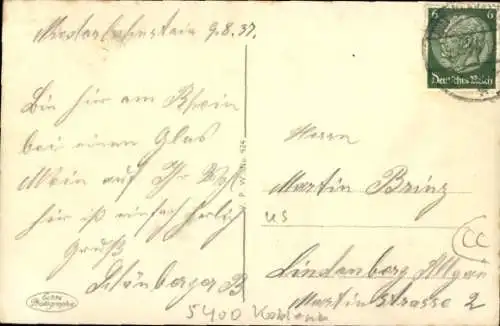 Niederlahnstein 9.8.37.
Bin hier am Rhein
bei einem Glas
Wein auf Ihr Wohl
hier ist einfach herlich
Gruß
Schönberger B
Echte Photographie
V. P. W. No. 424
6 6
Deutsches Reich
Herrn
Martin Brinz
US
CC
Lindenberg Allgäu
Martin strasse 2
5400 Koblenz